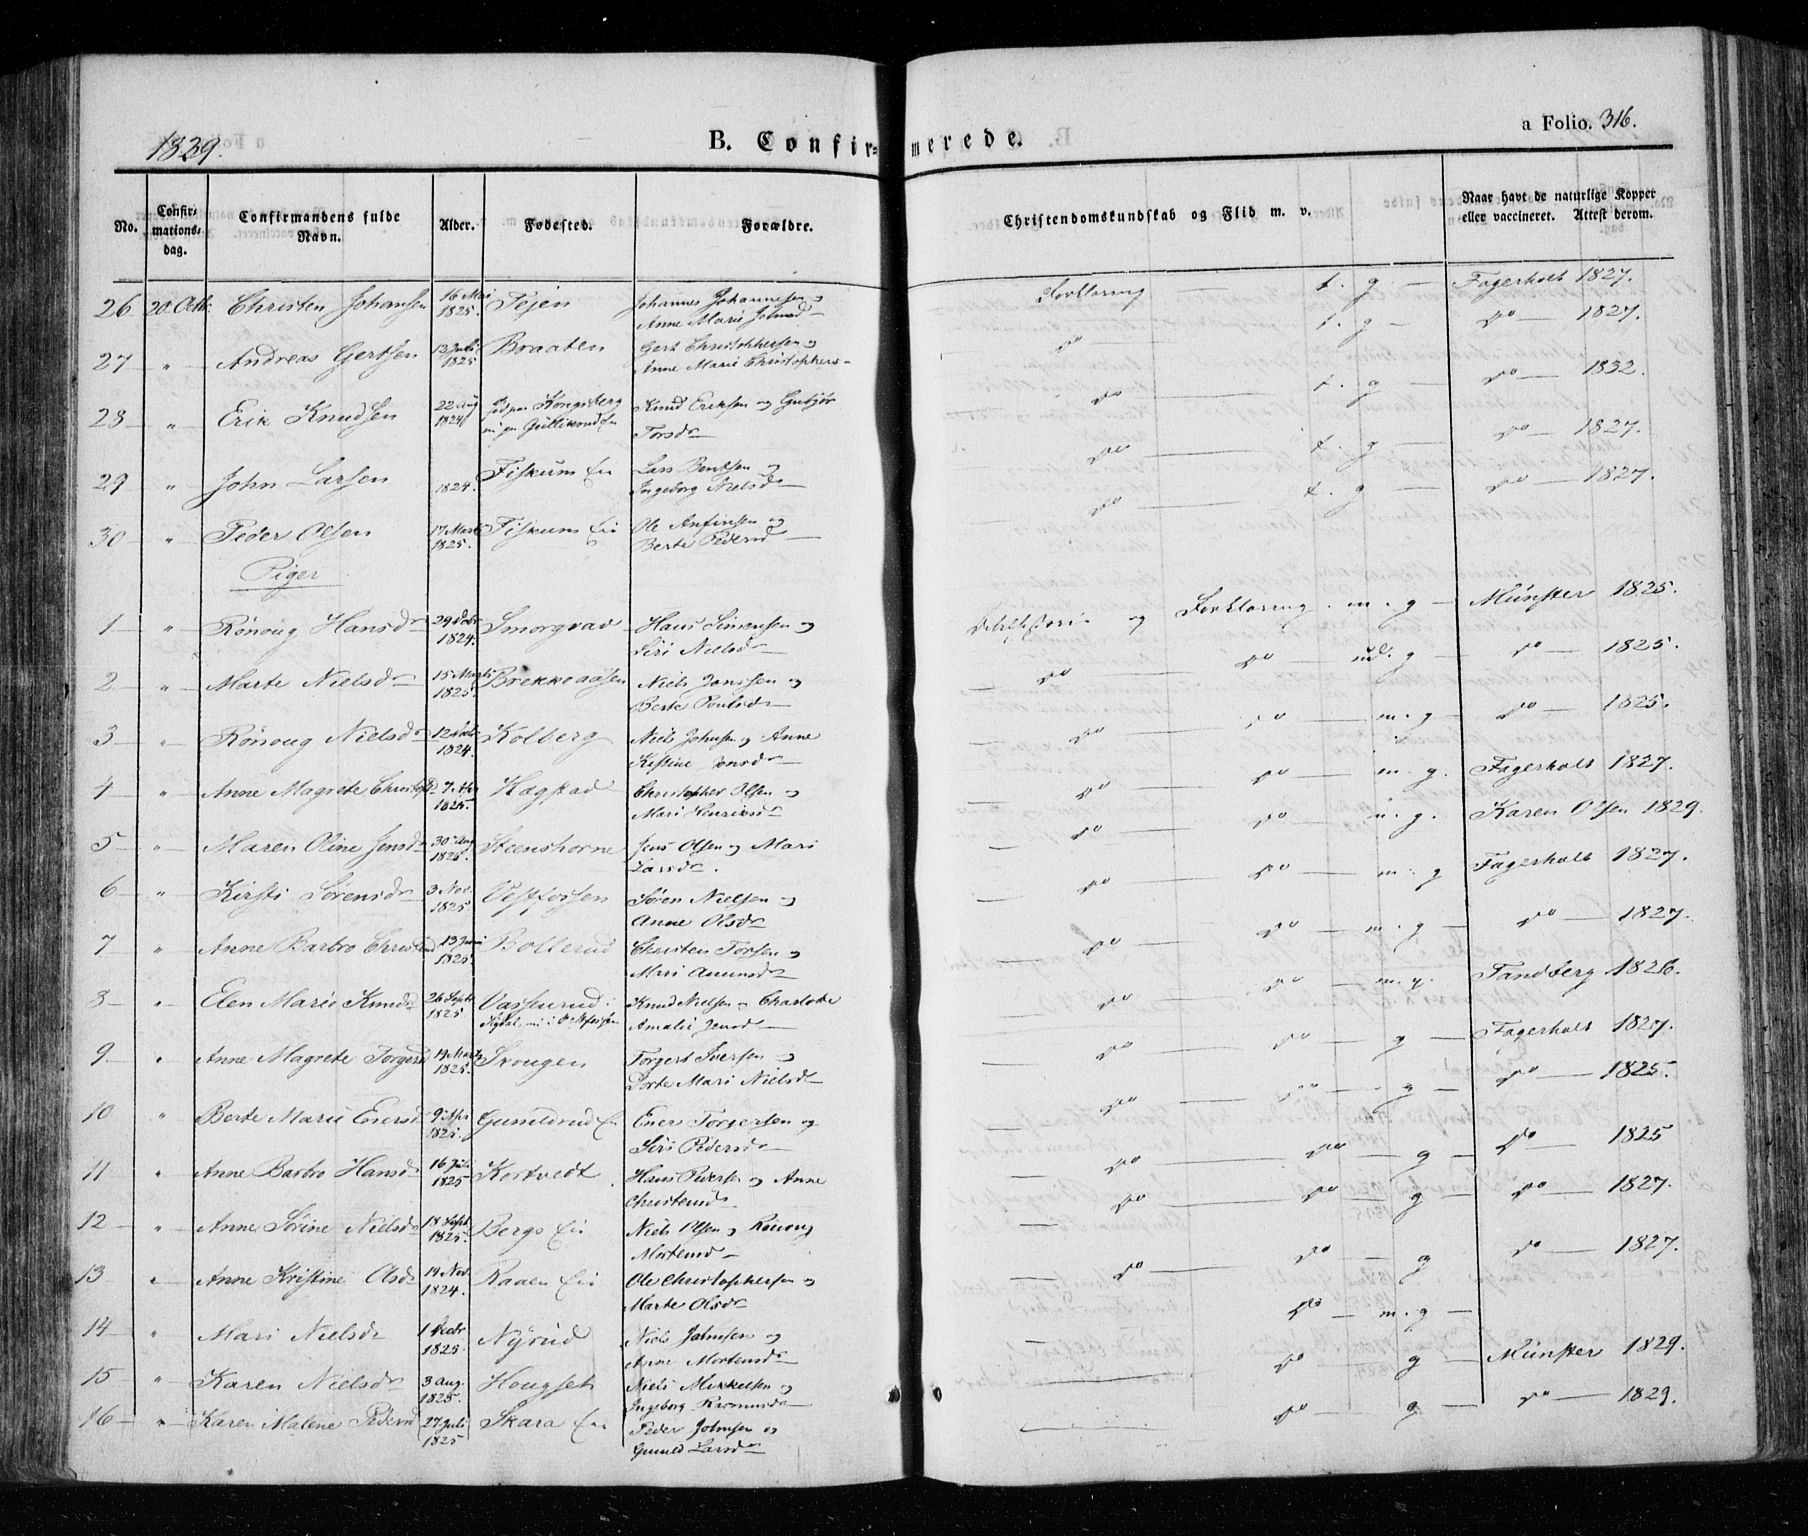 1839.
B. Confirmerede.
a Folio. 316.
No. Confirmationsdag. Confirmandens fulde Navn. Alder. Fødested. Forældre. Christendomskundskab og Flid m. v. Naar havt de naturlige Kopper eller vaccineret. Attest derom.
26 20 Octb. Christen Johansen 16 Mai 1825. Johannes Johannesen og Anne Marie Forklaring t. g — Fagerholt 1827.
27 " Andreas Gertsen 13 Juli 1825 Braaten Gert Christophersen og Anne Marie Christophers— do — t. g — do — 1827.
28 " Erik Knudsen 22 Aug 1824 Kongsberg Knud Eriksen og Gubjør Torsd— do — t. g — do — 1832.
29 " John Larsen 1824. Fiskum Ei Lars Bentsen og Ingeborg Nielsd— do — t. g — do — 1827.
30 " Peder Olsen 17 Marts 1825. Fiskum Ei Ole Anfinsen og Berte Pedersd— do — t. g — do — 1827.
Piger
1 " Rønoug Hansd— 1824. Smorgrav Hans Simensen og Siri Nielsd— Bibelhistorie og Forklaring. m. g — Münster 1825.
2 — " — Marte Nielsd— 15 Marts 1825. Brekkeaasen Niels Jonssen og Berte Poulsd— — do — do — ud. g — do — 1825.
3 — " Rønoug Nielsd— 1824. Kolberg Niels Johnsen og Anne Kistine — do — do — m. g — do — 1825.
4 — " — Anne Magrete 7 Apr 1825. Hagstad Christopher Olsen og Mari Henriksd — do — do — m. g. Fagerholt 1827.
5 — " — Maren Oline Jensd— 30 Aug 1825. Steenshorne Jens Olsen og Mari Larsd—. — do — do — g. Karen Olsen 1829.
6 " — Kirsti Sørensd— 3 Nov. 1825 Vestfossen Søren Nielsen og Anne Olsd— — do — do — m. g Fagerholt 1827.
7 — " — Anne Barbro 13 Juni 1825. Bollerud Christen Torsen og Mari — do — do — m. g — do — 1827.
8 — " Elen Marie Knudsd— 26 Septb 1825 Knud Nielsen og Charlotte Amalie Jensd— — do — do — m. g. Tandberg 1826.
9 — " Anne Magrete Torgersd 1825. Skougen Torgert Iversen og Dorte Mari Nielsd— — do — do — g — Fagerholt 1827.
10 " Berte Marie 9 Apr 1825. Ei Torgersen og Siri Pedersd— — do — g — do — 1825.
11 — " Anne Barbro Hansd— 16 Juli 1825 Kortvedt Hans Pedersen og Anne Christensd— — do — do — g — do — 1825
12 — " Anne Sørine Nielsd— 18 Sept. 1825. Bergs Ei Niels Olsen og Rønoug Mortensd— — do — do — g — do — 1827.
13 — " Anne Kristine Olsd— 19 Nov. 1824. Raaen Ei Ole Christophersen og Marte Olsd— — do — do — g do — 1827.
14 — " Mari Nielsd— 1 Decbr 1825. Nyrud Niels Johnsen og Anne Mortensd— — do — m. g —
15 — " — Karen Nielsd— 3 Aug. 1825. Hougset Niels Mikkelsen og Ingeborg Rasmusd— — do g — Münster 1829.
16 — " Karen Malene Pedersd 27 Juli 1825 Skara Ei Peder Johnsen og Larsd— do — g — do — 1829.